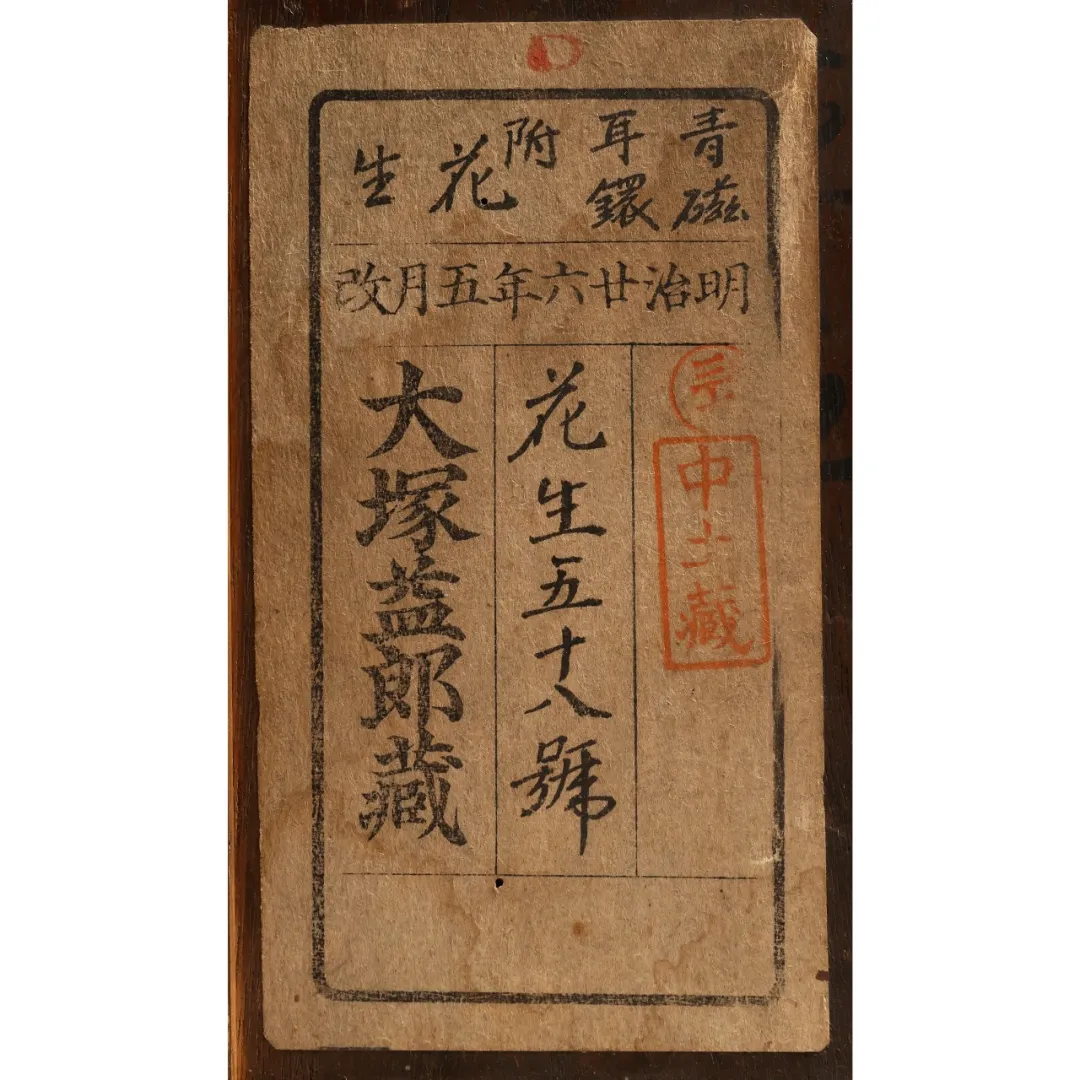 青磁
耳鐶
附
花生
明治廿六年五月改
中上藏
花生五十八號
大塚益郎藏